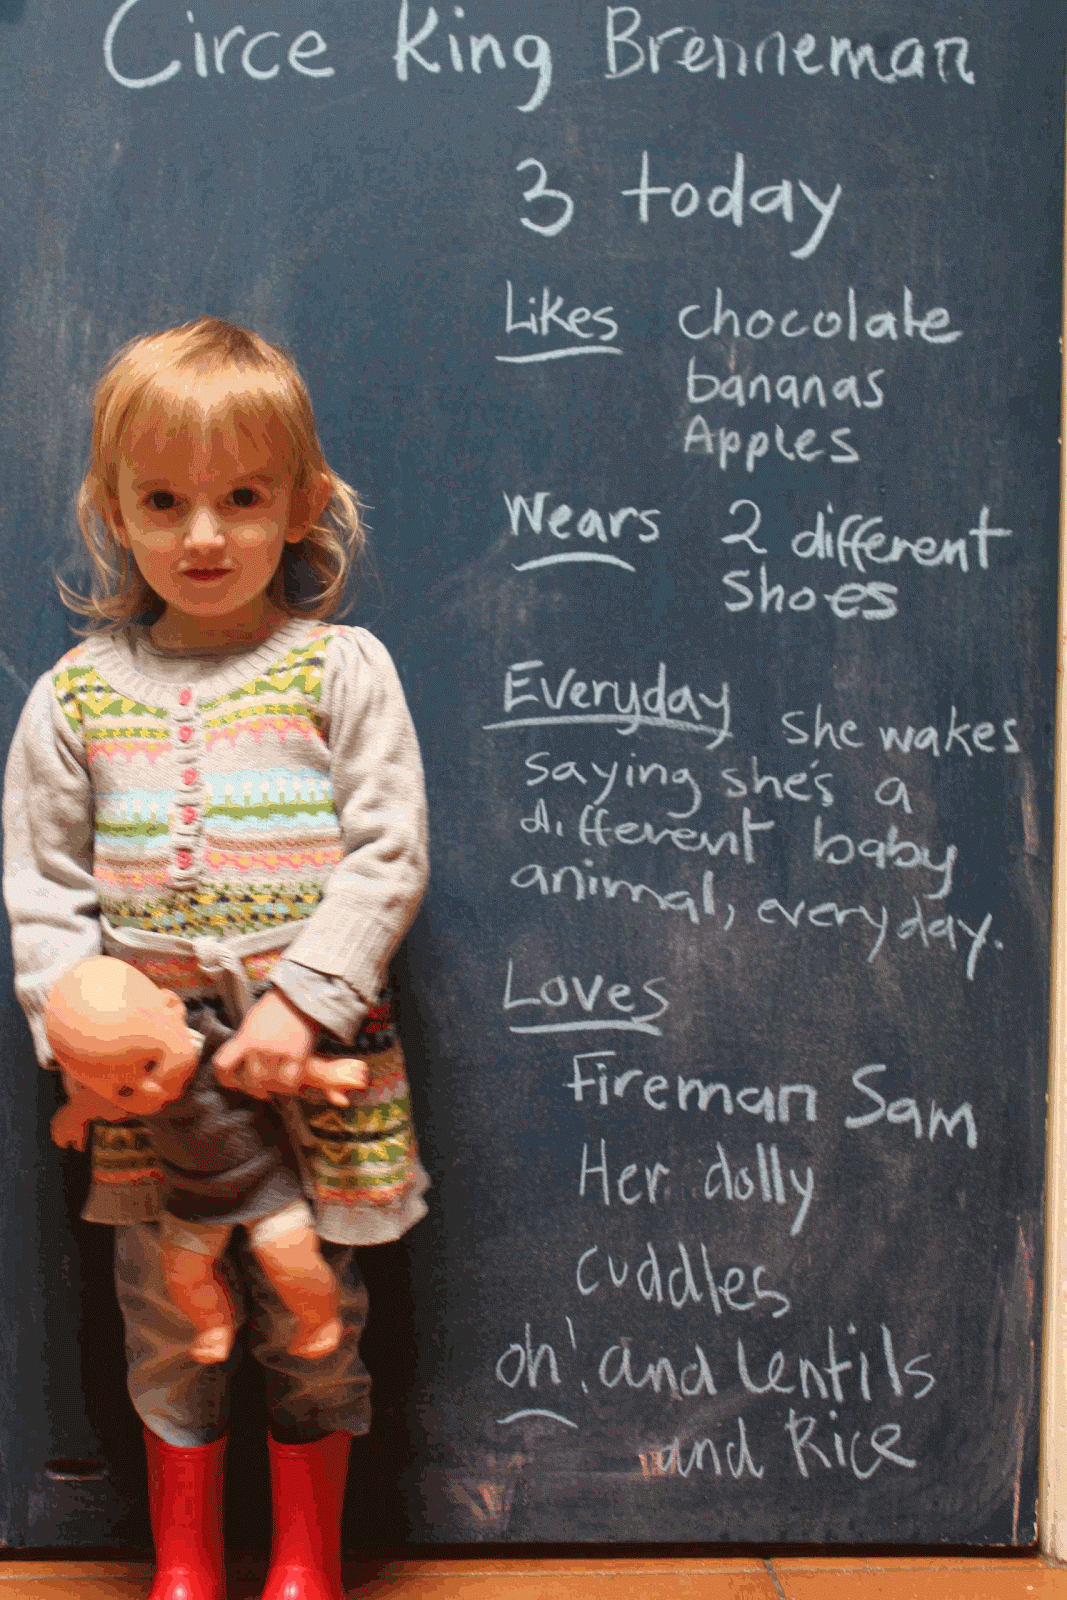 Circe King Brenneman
3 today
Likes chocolate
bananas
Apples
Wears 2 different
shoes
Everyday she wakes
saying she's a
different baby
animal, everyday.
Loves
Fireman Sam
Her dolly
cuddles
oh! and Lentils
and Rice